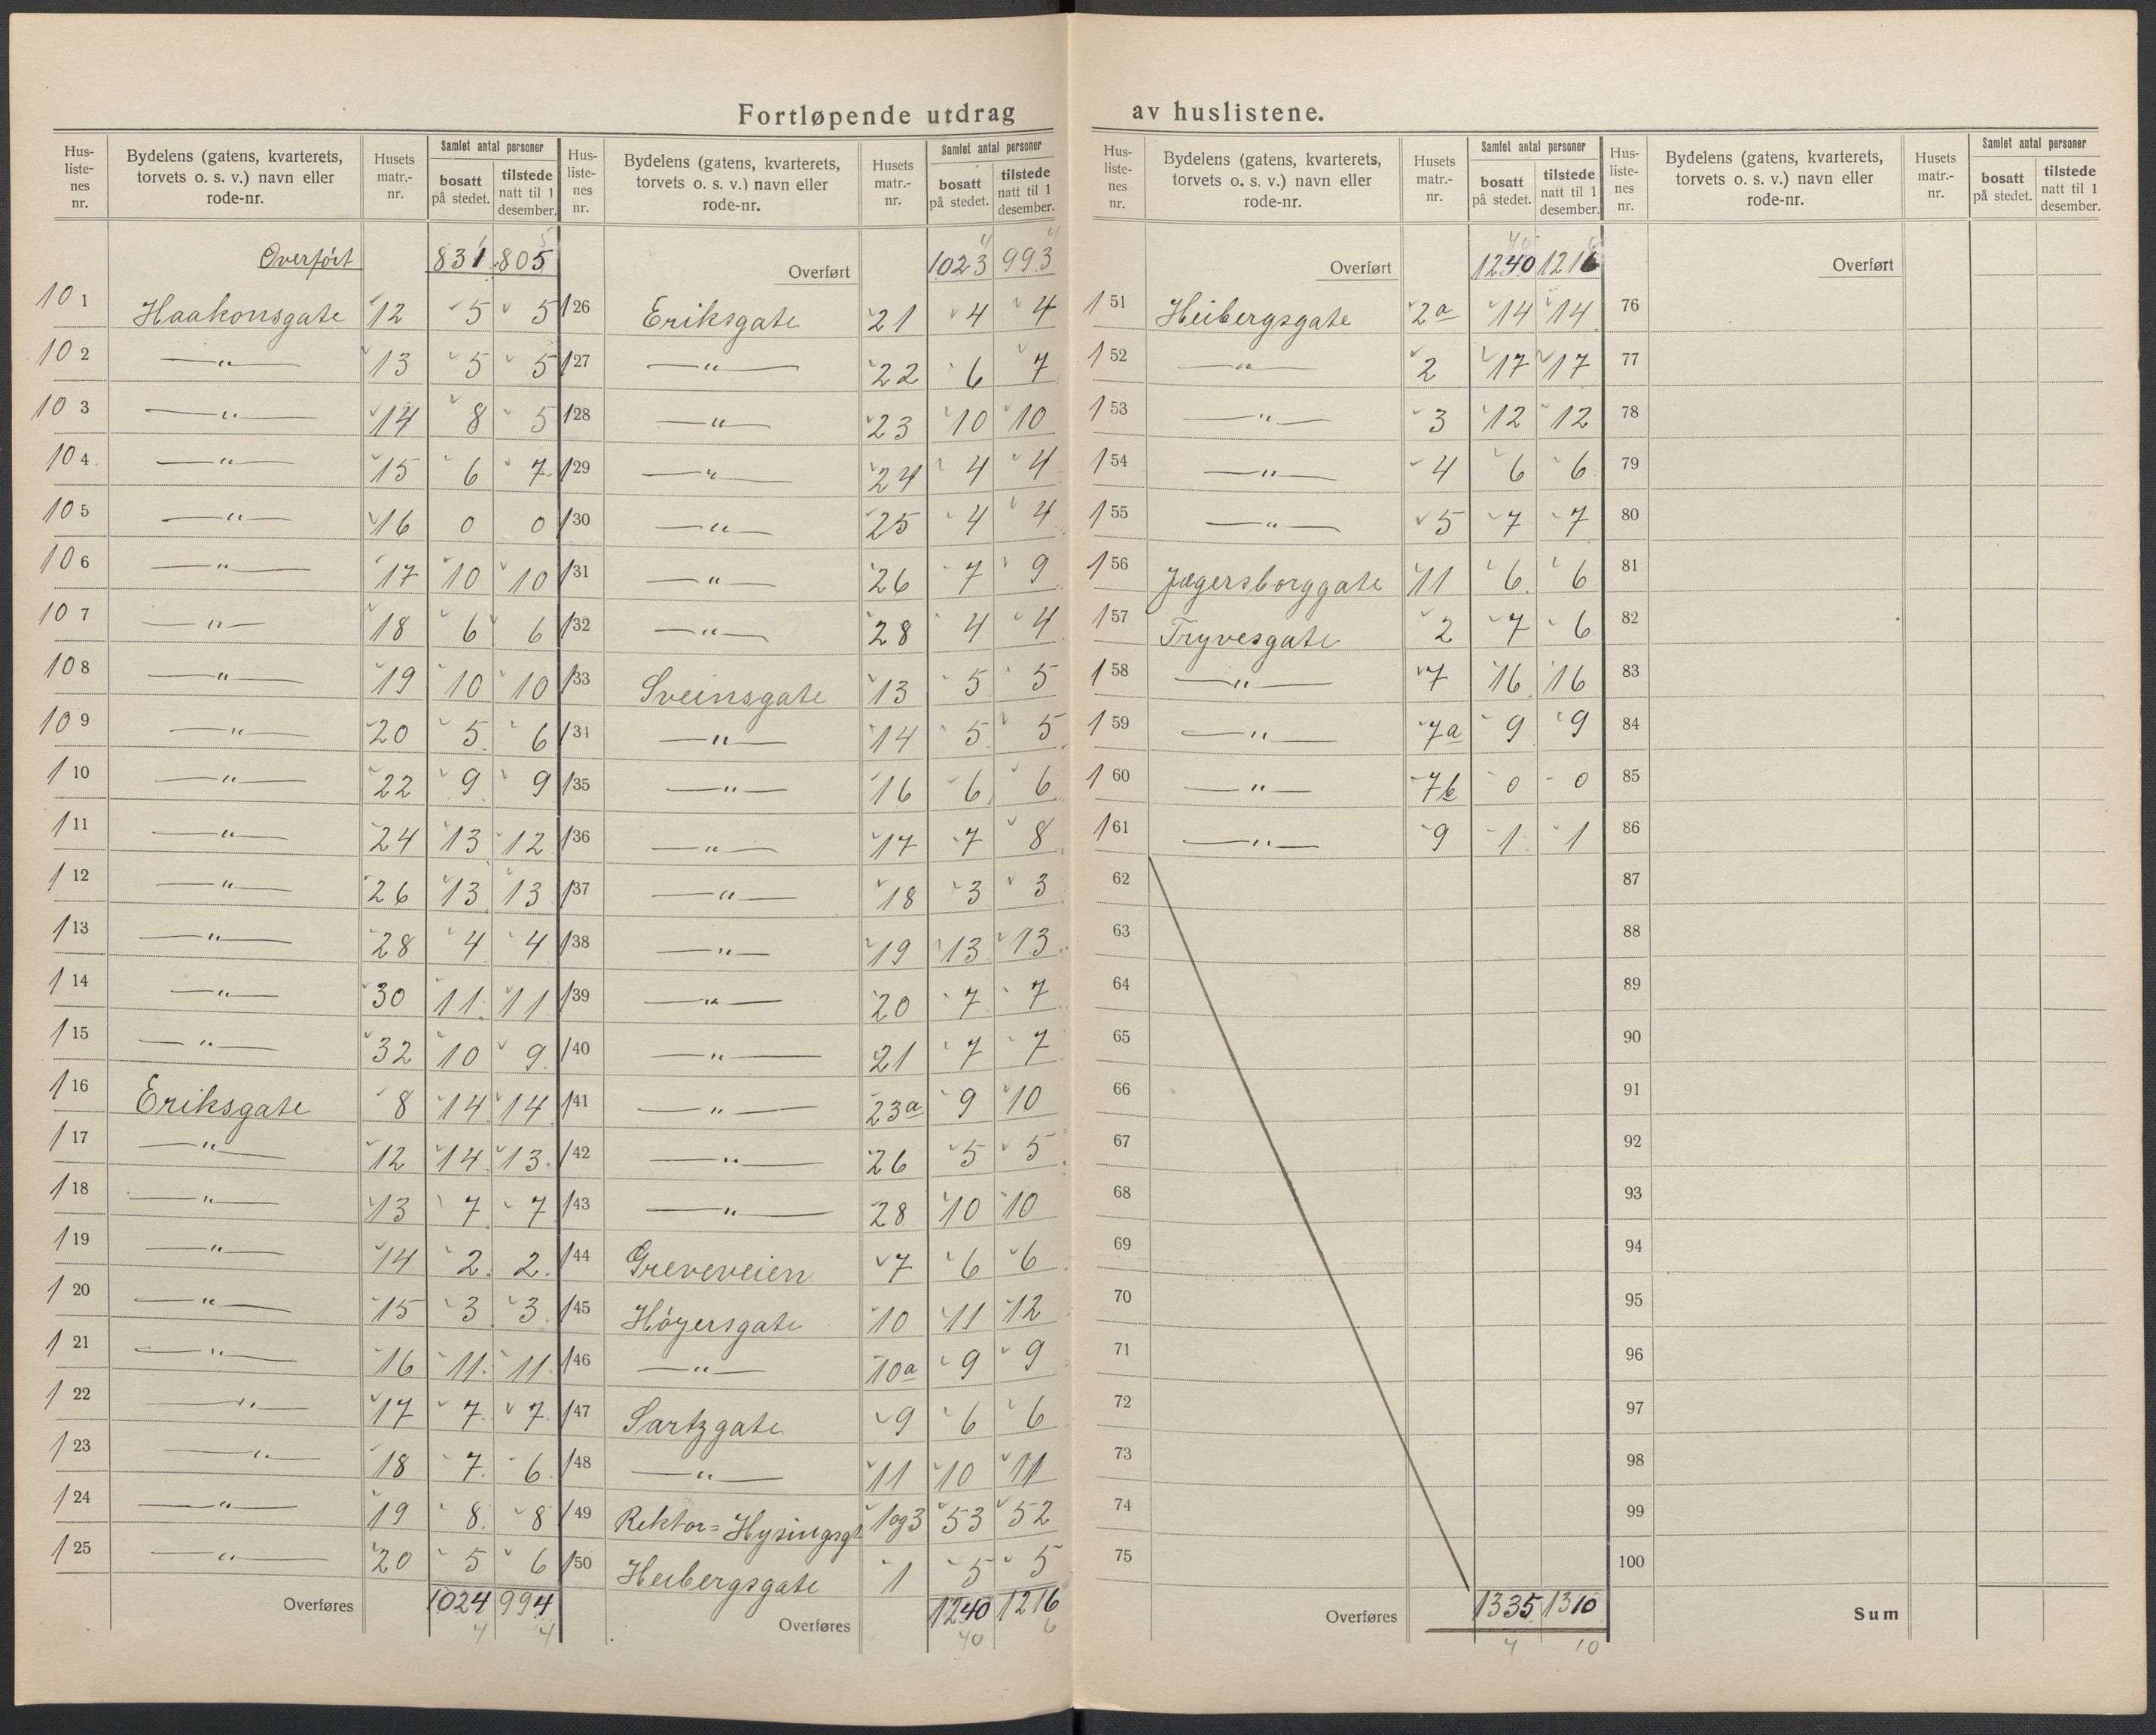 Fortløpende utdrag av huslistene.
Hus-listenes nr. | Bydelens (gatens, kvarterets, torvets o. s. v.) navn eller rode-nr. | Husets matr.-nr. | Samlet antal personer | bosatt på stedet. | tilstede natt til 1 desember.
Overført 831 805
101 Haakonsgate 12 5 5
102 —"— 13 5 5
103 —"— 14 8 5
104 —"— 15 6 7
105 —"— 16 0 0
106 —"— 17 10 10
107 —"— 18 6 6
108 —"— 19 10 10
109 —"— 20 5 6
110 —"— 22 9 9
111 —"— 24 13 12
112 —"— 26 13 13
113 —"— 28 4 4
114 —"— 30 11 11
115 —"— 32 10 9
116 Eriksgate 8 14 14
117 —"— 12 14 13
118 —"— 13 7 7
119 —"— 14 2 2
120 —"— 15 3 3
121 —"— 16 11 11
122 —"— 17 7 7
123 —"— 18 7 6
124 —"— 19 8 8
125 —"— 20 5 6
Overføres 1024 994
4 4
Hus-listenes nr. | Bydelens (gatens, kvarterets, torvets o. s. v.) navn eller rode-nr. | Husets matr.-nr. | Samlet antal personer | bosatt på stedet. | tilstede natt til 1 desember.
4 4
Overført 1023 993
126 Eriksgate 21 4 4
127 —"— 22 6 7
128 —"— 23 10 10
129 —"— 24 4 4
130 —"— 25 4 4
131 —"— 26 7 9
132 —"— 28 4 4
133 Sveinsgate 13 5 5
134 —"— 14 5 5
135 —"— 16 6 6
136 —"— 17 7 8
137 —"— 18 3 3
138 —"— 19 13 13
139 —"— 20 7 7
140 —"— 21 7 7
141 —"— 23a 9 10
142 —"— 26 5 5
143 —"— 28 10 10
144 Greveveien 7 6 6
145 Höyersgate 10 11 12
146 —"— 10a 9 9
147 Sartzgate 9 6 6
148 —"— 11 10 11
149 Rektor=Hysingsgt 1og3 53 52
150 Heibergsgate 1 5 5
Overføres 1240 1216
40 6
Hus-listenes nr. | Bydelens (gatens, kvarterets, torvets o. s. v.) navn eller rode-nr. | Husets matr.-nr. | Samlet antal personer | bosatt på stedet. | tilstede natt til 1 desember.
40 6
Overført 1240 1216
151 Heibergsgate 2a 14 14
152 —"— 2 17 17
153 —"— 3 12 12
154 —"— 4 6 6
155 —"— 5 7 7
156 Jægersborggate 11 6 6
157 Tryvesgate 2 7 6
158 —"— 7 16 16
159 —"— 7a 9 9
160 —"— 7b 0 0
161 —"— 9 1 1
62
63
64
65
66
67
68
69
70
71
72
73
74
75
Overføres 1335 1310
4 10
Hus-listenes nr. | Bydelens (gatens, kvarterets, torvets o. s. v.) navn eller rode-nr. | Husets matr.-nr. | Samlet antal personer | bosatt på stedet. | tilstede natt til 1 desember.
Overført
76
77
78
79
80
81
82
83
84
85
86
87
88
89
90
91
92
93
94
95
96
97
98
99
100
Sum